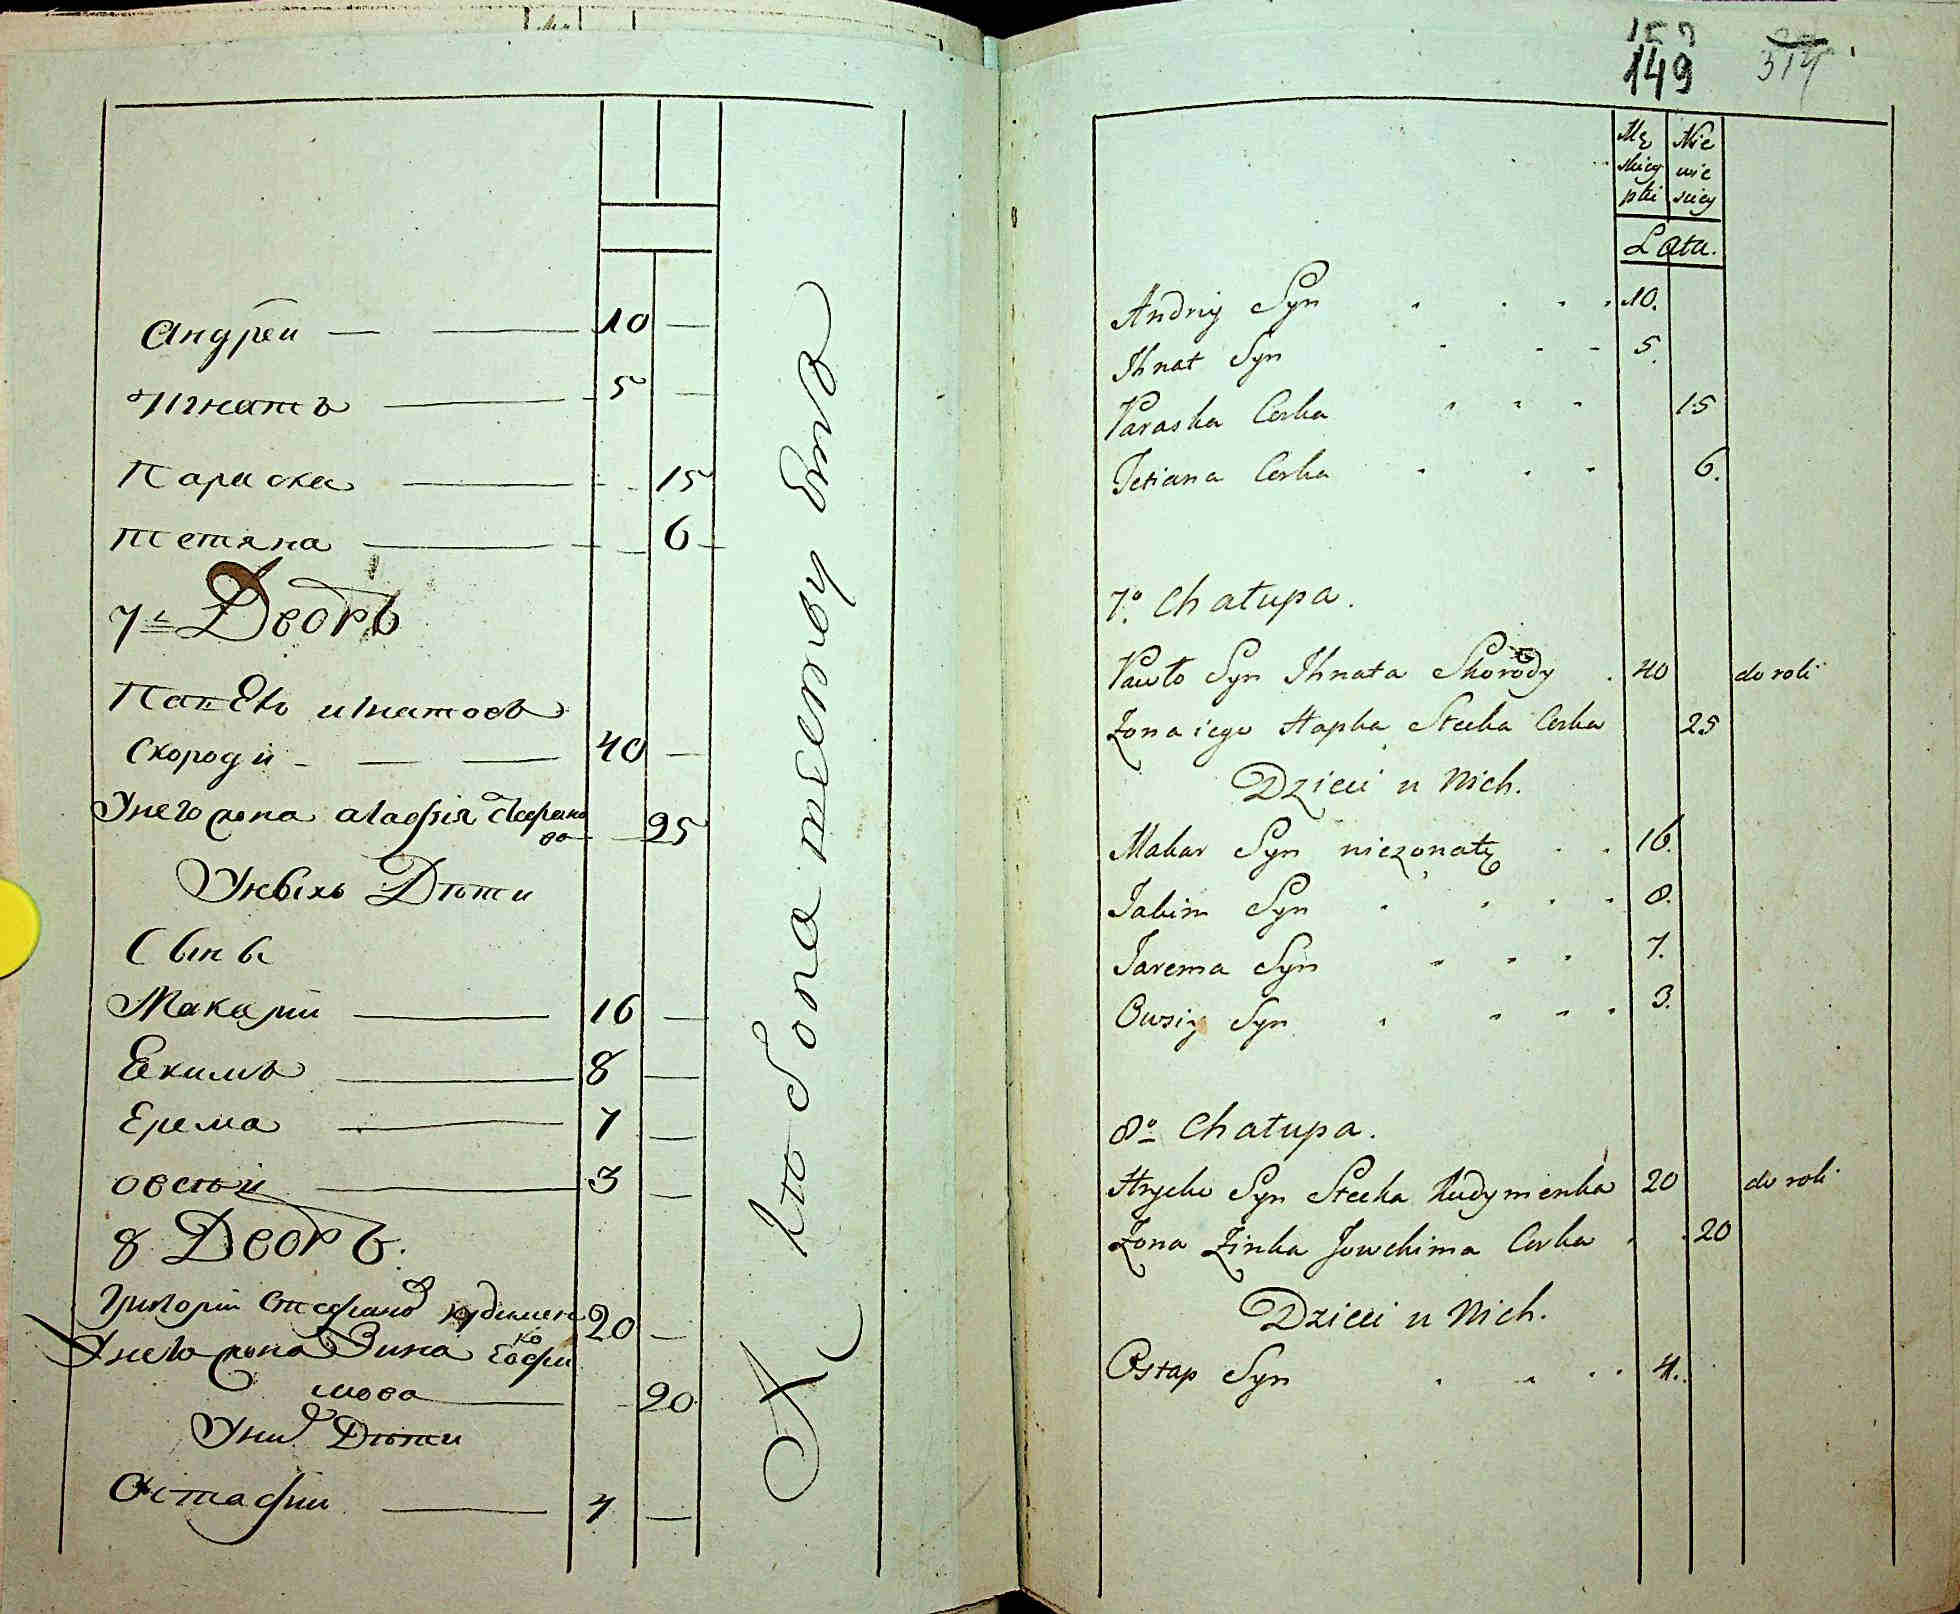 Андреи — — 10 —
Игнатъ — 5 —
Параска — 15
Тетяна — 6
7й Дворъ
Павелъ игнатовъ
Скороди — — — 40 —
Унего жона агафiя Стефано
ва — 25
Унихъ Дѣти
Сынъ
Макарiи — 16 —
Екимъ — 8 —
Ерема — 7 —
овсѣй — 3 —
8 Дворъ.
Григорiи Стефановъ кудимен
ко 20 —
Унего жона Зина Ефи
мова — 20
Унихъ Дѣти
Остафiи — 4 —
149
314
Mę
skiey
płci
Nie
wie
sciey
Lata.
Andriy Syn 10.
Ihnat Syn 5.
Paraska Corka 15
Tetiana Corka 6.
7o. Chałupa.
Pawło Syn Ihnata Skorody 40 do roli
Żona iego Hapka Stecka Corka 25
Dzieci u Nich.
Makar Syn nieżonaty 16.
Jakim Syn 8.
Jarema Syn 7.
Owsiy Syn 3.
8o Chałupa.
Hryćko Syn Stecka Kudymenka 20 do roli
Żona Zinka Jowchima Corka 20
Dzieci u Nich.
Ostap Syn 4.